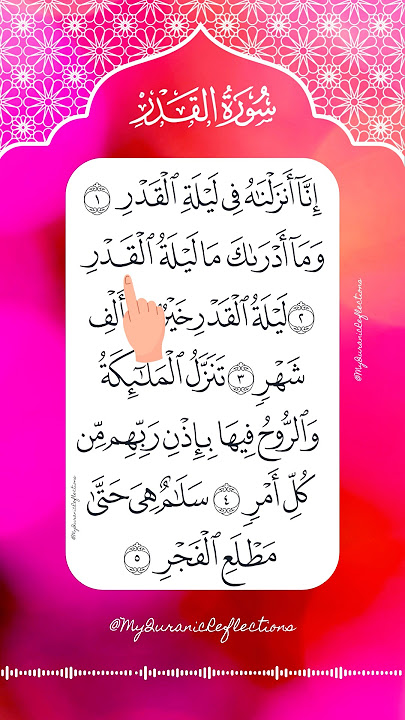 سُورَةُ القَدْرِ
إِنَّآ أَنزَلْنَٰهُ فِى لَيْلَةِ ٱلْقَدْرِ ١
وَمَآ أَدْرَىٰكَ مَا لَيْلَةُ ٱلْقَدْرِ
٢ لَيْلَةُ ٱلْقَدْرِ أَلْفِ
شَهْرٍ ٣ تَنَزَّلُ ٱلْمَلَٰٓئِكَةُ
وَٱلرُّوحُ فِيهَا بِإِذْنِ رَبِّهِم مِّن
كُلِّ أَمْرٍ ٤ سَلَٰمٌ هِىَ حَتَّىٰ
مَطْلَعِ ٱلْفَجْرِ ٥
@MyQuranicReflections
@MyQuranicReflections
@MyQuranicReflections